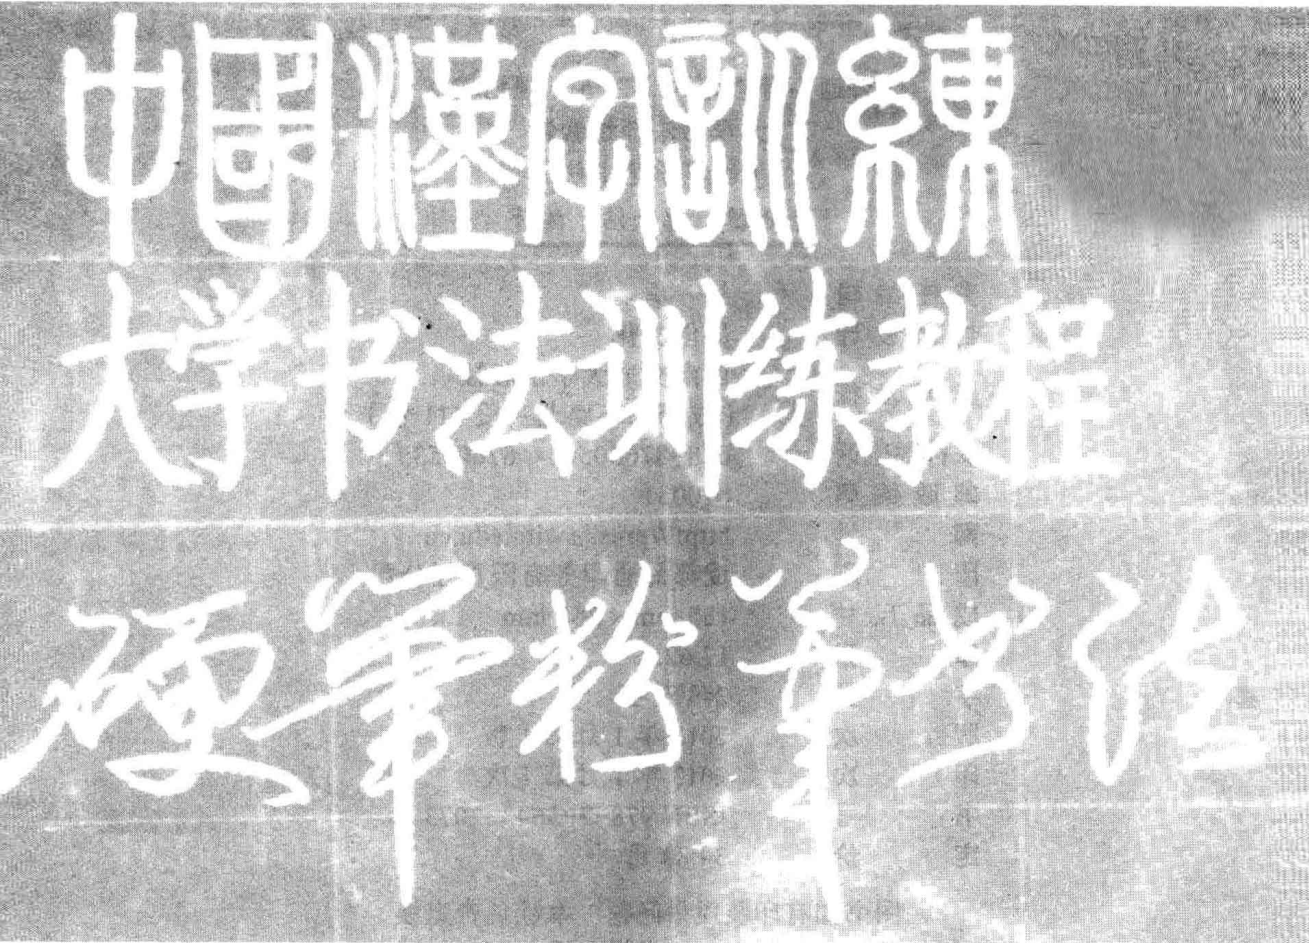 中國漢字訓練
大学书法训练教程
硬筆粉筆书法